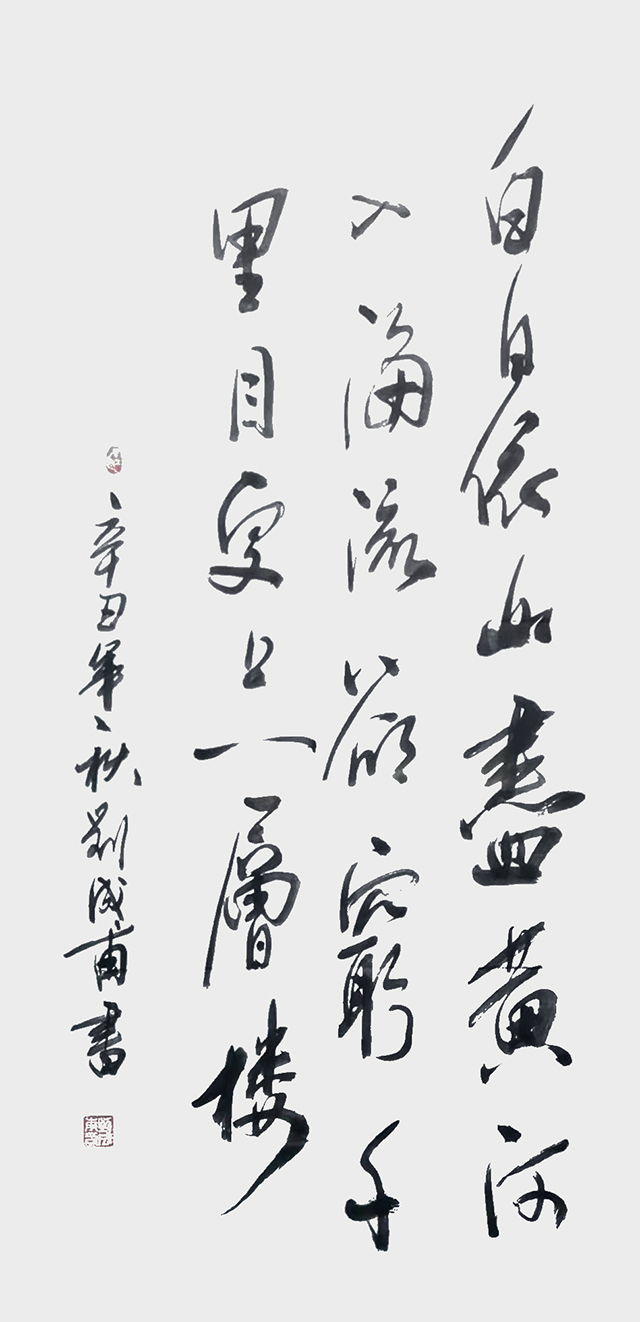 白日依山盡黄河
入海流欲窮千
里目更上一層楼
辛丑年秋劉成甫書